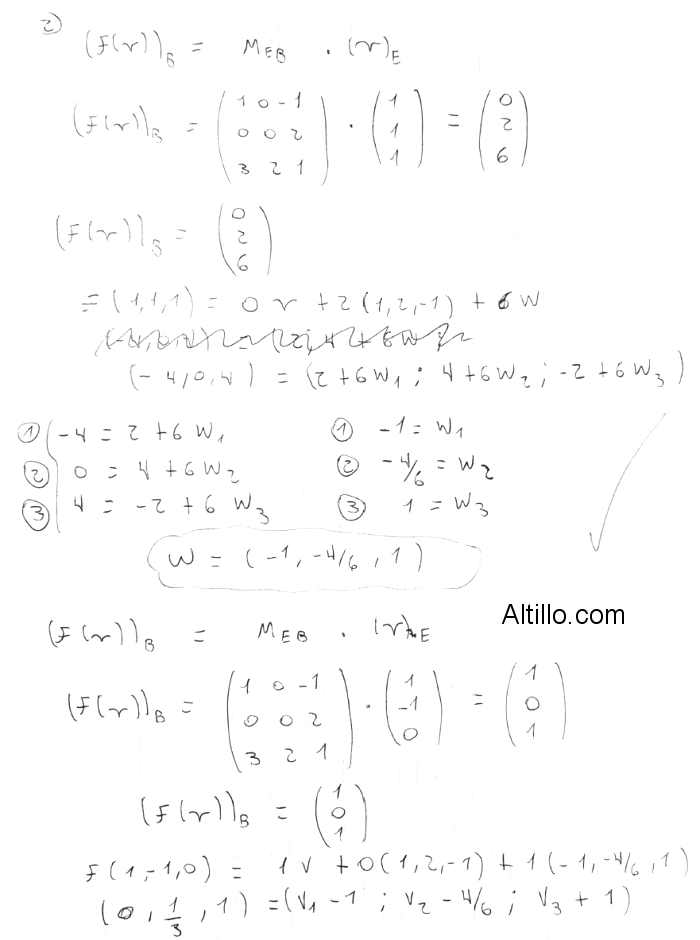 2)
(f(v))B = MEB . (v)E
(f(v))B = (1 0 -1 / 0 0 2 / 3 2 1) . (1 / 1 / 1) = (0 / 2 / 6)
(f(v))B = (0 / 2 / 6)
= (1,1,1) = 0v + 2(1,2,-1) + 6W
(-4,0,4) = (2+6W1 ; 4+6W2 ; -2+6W3)
① -4 = 2 + 6W1 ① -1 = W1
② 0 = 4 + 6W2 ② -4/6 = W2
③ 4 = -2 + 6W3 ③ 1 = W3
W = (-1, -4/6, 1)
Altillo.com
(f(v))B = MEB . (v)E
(f(v))B = (1 0 -1 / 0 0 2 / 3 2 1) . (1 / -1 / 0) = (1 / 0 / 1)
(f(v))B = (1 / 0 / 1)
f(1,-1,0) = 1v + 0(1,2,-1) + 1(-1,-4/6,1)
(0, 1/3, 1) = (V1 - 1 ; V2 - 4/6 ; V3 + 1)